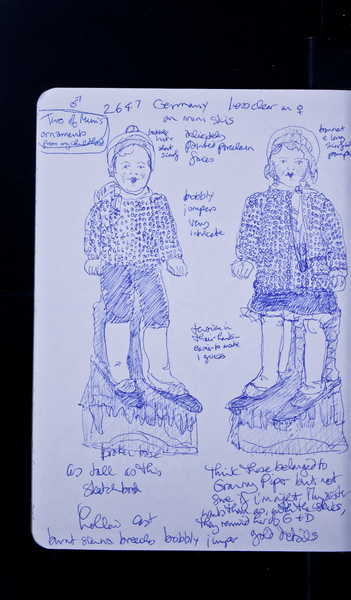 ♂ 2647 Germany less clear on ♀
on mini skis
Two of Mum's
ornaments
from my childhood
bobble
hat +
short
scarf
delicately
painted porcelain
faces
bonnet
& long
scarf
pompom
bobbly
jumpers
very
intricate
tension in
their hands
easier to make
I guess
broken base
as tall as this
sketchbook
Think these belonged to
Granny Piper but not
sure if I'm right. My sister
the skies,
they remind her of G + D
hollow cast
burnt sienna breeches bobbly jumper gold details